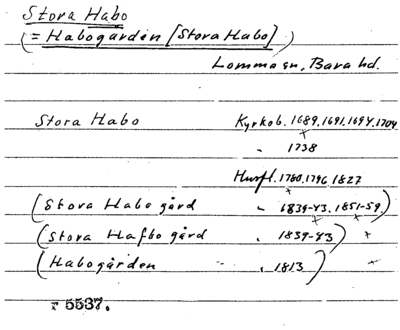 Stora Habo
(= Habogården [Stora Habo])
Lomma sn, Bara hd.
Stora Habo Kyrkob. 1689, 1691, 1694, 1704
" 1738
Husfl. 1780, 1796, 1827
(Stora Habo gård " 1839-43, 1851-59)
(Stora Hafbo gård " 1839-43)
(Habogården " 1813)
r 5537.